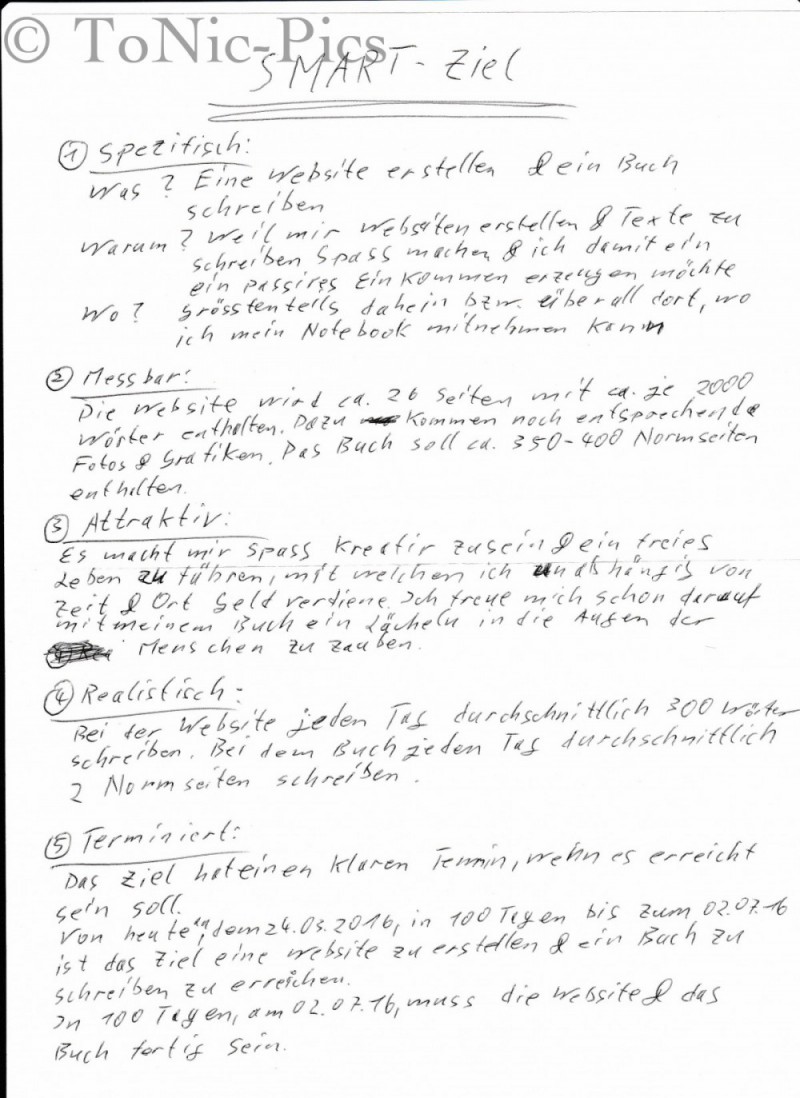 © ToNic-Pics
SMART-Ziel
① Spezifisch:
Was? Eine Website erstellen & ein Buch
schreiben
Warum? Weil mir Websiten erstellen & Texte zu
schreiben Spass machen & ich damit ein
ein passives Einkommen erzeugen möchte
Wo? Grösstenteils daheim bzw. überall dort, wo
ich mein Notebook mitnehmen kann
② Messbar:
Die Website wird ca. 26 Seiten mit ca. je 2000
Wörter enthalten. Dazu kommen noch entsprechende
Fotos & Grafiken. Das Buch soll ca. 350-400 Normseiten
enthalten.
③ Attraktiv:
Es macht mir Spass kreativ zu sein & ein freies
Leben zu führen, mit welchen ich unabhängig von
Zeit & Ort Geld verdiene. Ich freue mich schon darauf
mit meinem Buch ein Lächeln in die Augen der
Menschen zu zauben.
④ Realistisch:
Bei der Website jeden Tag durchschnittlich 300 Wörter
schreiben. Bei dem Buch jeden Tag durchschnittlich
2 Normseiten schreiben.
⑤ Terminiert:
Das Ziel hat einen klaren Termin, wenn es erreicht
sein soll.
Von heute an, dem 24.03.2016, in 100 Tagen bis zum 02.07.16
ist das Ziel eine Website zu erstellen & ein Buch zu
schreiben zu erreichen.
In 100 Tagen, am 02.07.16, muss die Website & das
Buch fertig sein.